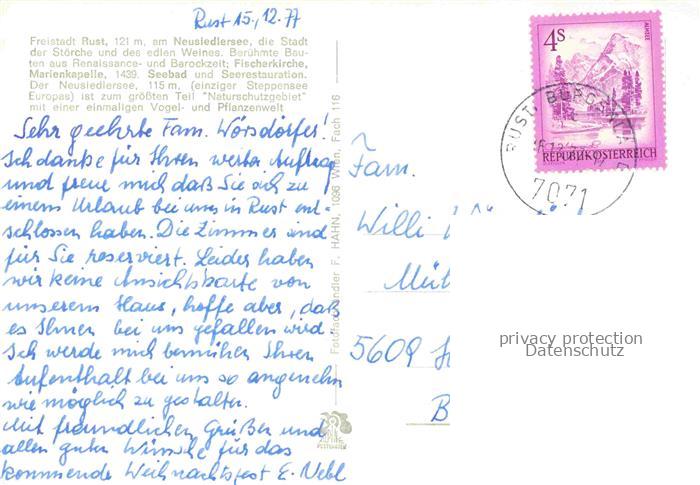 Rust 15., 12. 77
Freistadt Rust, 121 m, am Neusiedlersee, die Stadt
der Störche und des edlen Weines. Berühmte Bau-
ten aus Renaissance- und Barockzeit; Fischerkirche,
Marienkapelle, 1439. Seebad und Seerestauration.
Der Neusiedlersee, 115 m, (einziger Steppensee
Europas) ist zum größten Teil "Naturschutzgebiet"
mit einer einmaligen Vogel- und Pflanzenwelt
Sehr geehrte Fam. Wörsdörfer!
Ich danke für Ihren werten Auftrag
und freue mich daß Sie sich zu
einem Urlaub bei uns in Rust ent-
schlossen haben. Die Zimmer sind
für Sie reserviert. Leider haben
wir keine Ansichtskarte von
unserem Haus, hoffe aber, daß
es Ihnen bei uns gefallen wird.
Ich werde mich bemühen Ihren
Aufenthalt bei uns so angenehm
wie möglich zu gestalten.
Mit freundlichen Grüßen und
allen guten Wünsche für das
kommende Weihnachtsfest E. Nebl
Fotofachhändler F. HAHN, 1096 Wien, Fach 116
4S
ALMSEE
REPUBLIK ÖSTERREICH
RUST, BURGENLAND
7071
Fam.
Willi
Müt
5609
B
privacy protection
Datenschutz